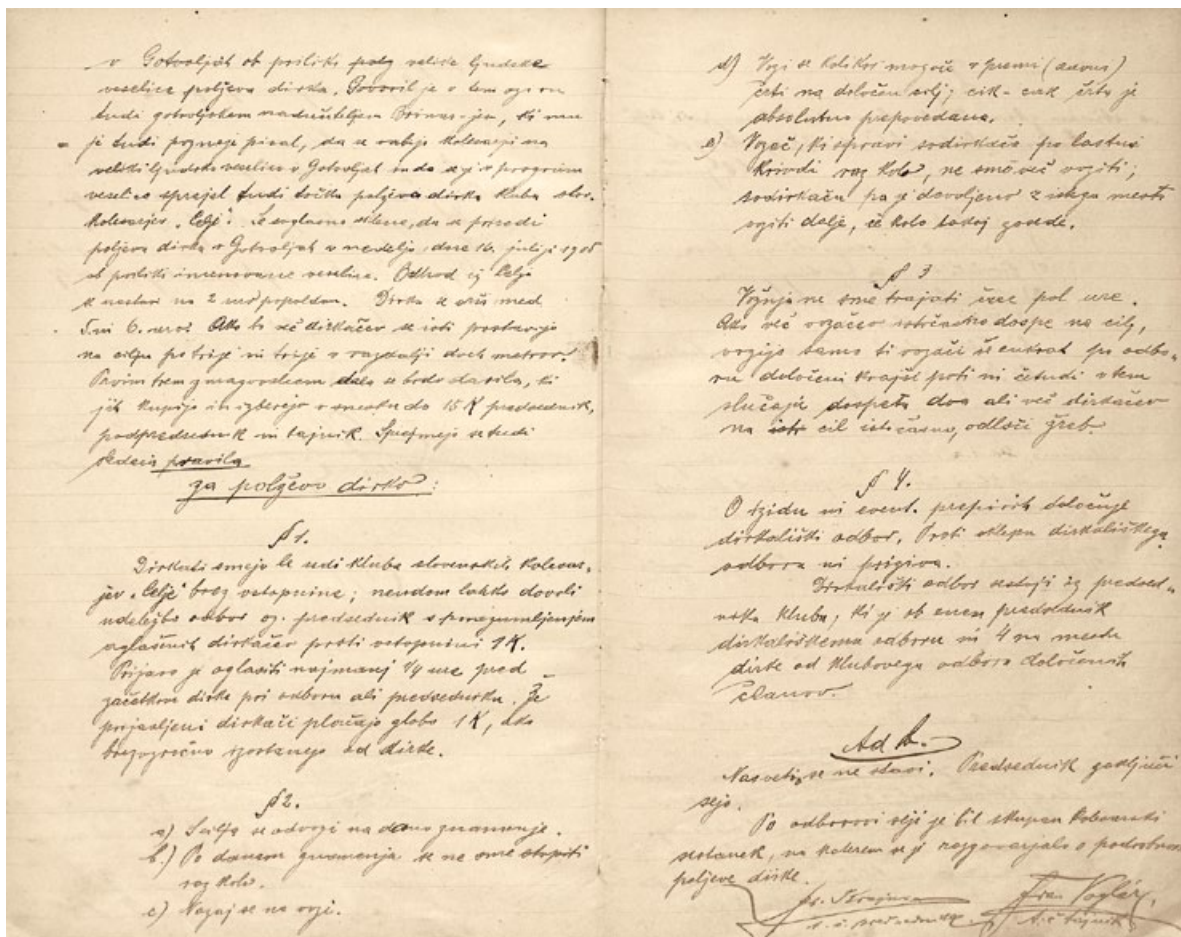 v Gotovljah ob priliki velike ljudske
veselice polževa dirka. Govoril je o tem
tudi gotoveljskem nadučiteljem, ki mu
je tudi pozneje pisal, da se vabijo kolesarji na
veliko ljudsko veselico v Gotovljah in da se je v program
veselice sprejel tudi točka polževa dirka kluba slov.
kolesarjev „Celje“. Se soglasno sklene, da se priredi
polževa dirka v Gotovljah v nedeljo, dne 16. julija 1905
ob priliki imenovane veselice. Odhod iz Celja
se nastavi na 2 uro popoldan. Dirka se vrši med
5. in 6. uro. Ako bo več dirkačev se isti postavijo
na cilju po trije in trije v razdalji dveh metrov.
Prvim trem zmagovalcem se bodo darila, ki
jih kupijo in izberejo v znesku do 15 K predsednik,
podpredsednik in tajnik. Sprejmejo se tudi
sledeča pravila
za polževo dirko:
§ 1.
Dirkati smejo le udi kluba slovenskih kolesar-
jev „Celje“ brez vstopnine; neudom lahko dovoli
udeležbo odbor oz. predsednik s porazumljenjem
oglašenih dirkačev proti vstopnini 1 K.
Prijavo je oglasiti najmanj 1/4 ure pred
začetkom dirke pri odboru ali predsedniku. Že
prijavljeni dirkači plačajo globo 1 K, ako
brezvzročno izostanejo od dirke.
§ 2.
a) S cilja se odvozi na dano znamenje.
b.) Po danem znamenju se ne sme stopiti
raz kolo.
c) Nazaj se ne vozi.
d) Vozi se kolikor mogoče v premi (
črti na določen cilj; cik-cak črta je
absolutno prepovedana.
e) Vozač, ki spravi sodirkača po lastni
krivdi raz kolo, ne sme več voziti;
sodirkaču pa je dovoljeno z istega mesta
voziti dalje, če kolo takoj zasede.
§ 3
Vožnja ne sme trajati čez pol ure.
Ako več vozačev istočasno dospe na cilj,
vozijo samo ti vozači še enkrat po odbo-
ru določeni krajši poti in četudi v tem
slučaju dospeta dva ali več dirkačev
na cilj istočasno, odloči žreb.
§ 4.
O izidu in event. prepirih določuje
dirkališki odbor. Proti sklepu dirkališkega
odbora ni priziva.
Dirkališki odbor sestoji iz predsed-
nika kluba, ki je ob enem predsednik
dirkališkemu odboru in 4 na mestu
dirke od klubovega odbora določenih
članov.
Ad
Nasveti se ne stavi. Predsednik zaključi
sejo.
Po odborovi seji je bil skupen kolesarski
sestanek, na katerem se je razgovarjalo o podrobnosti
polževe dirke.
t. č. predsednik. t. č. tajnik.